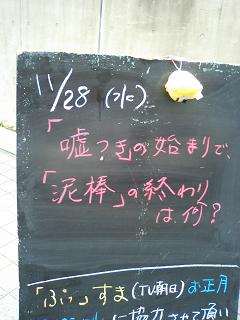 11/28(水)
「嘘つき」の始まりで、
「泥棒」の終わり
は何?
「ぷっ」すま(TV朝日)お正月
に協力させて頂い